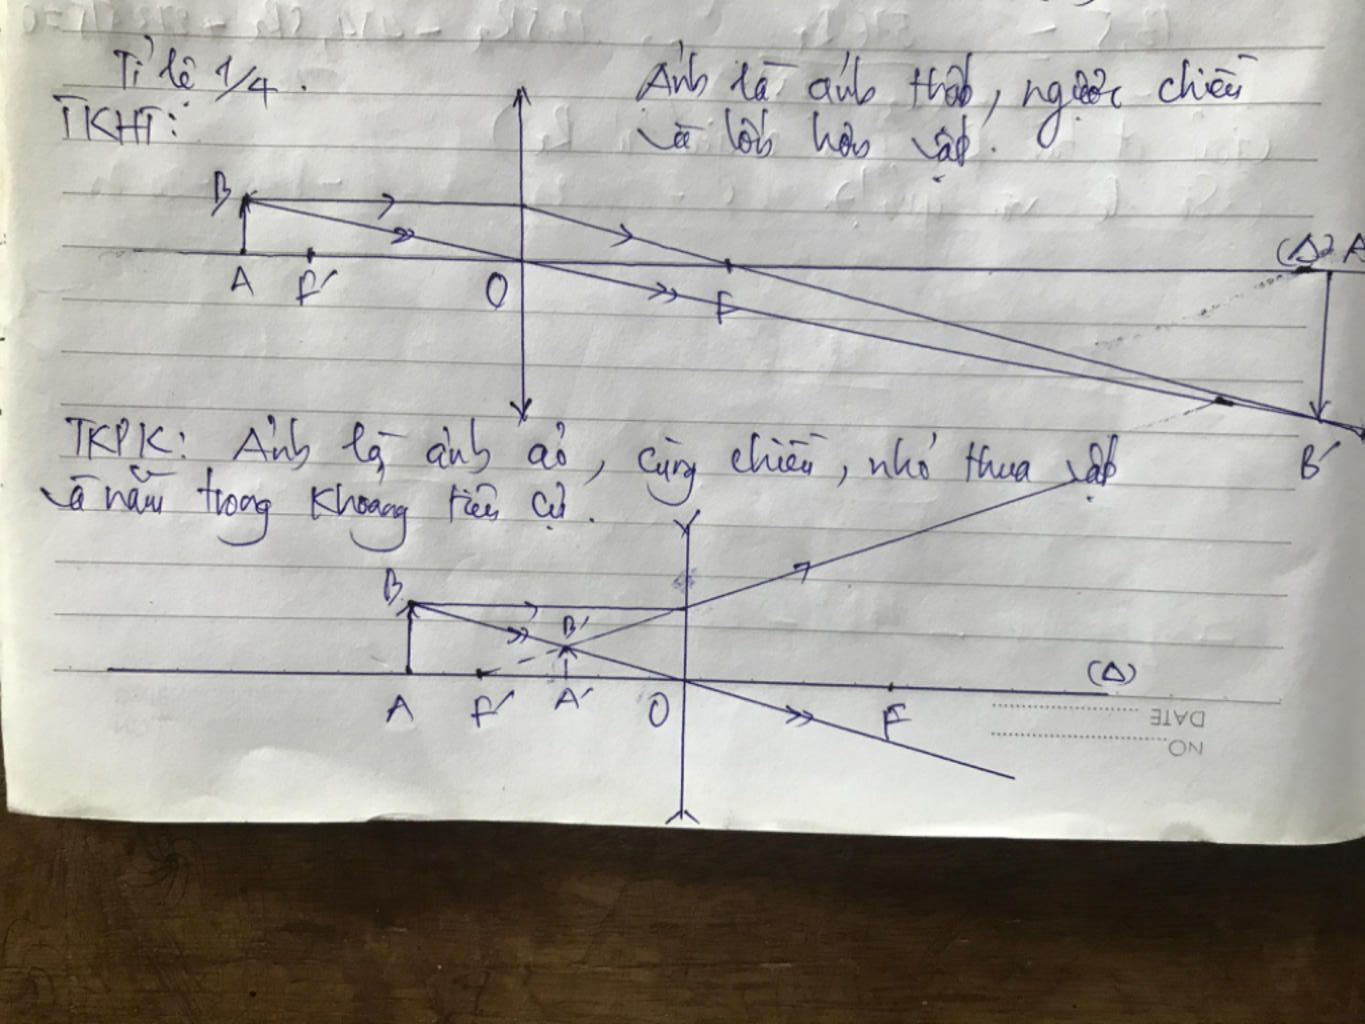 Tỉ lệ 1/4.
Ảnh là ảnh thật, ngược chiều
TKHT:
và lớn hơn vật.
B
(Δ) A
A F' O F
B'
TKPK: Ảnh là ảnh ảo, cùng chiều, nhỏ thua vật
và nằm trong khoảng tiêu cự.
B
B'
(Δ)
A F' A' O F
DATE
NO